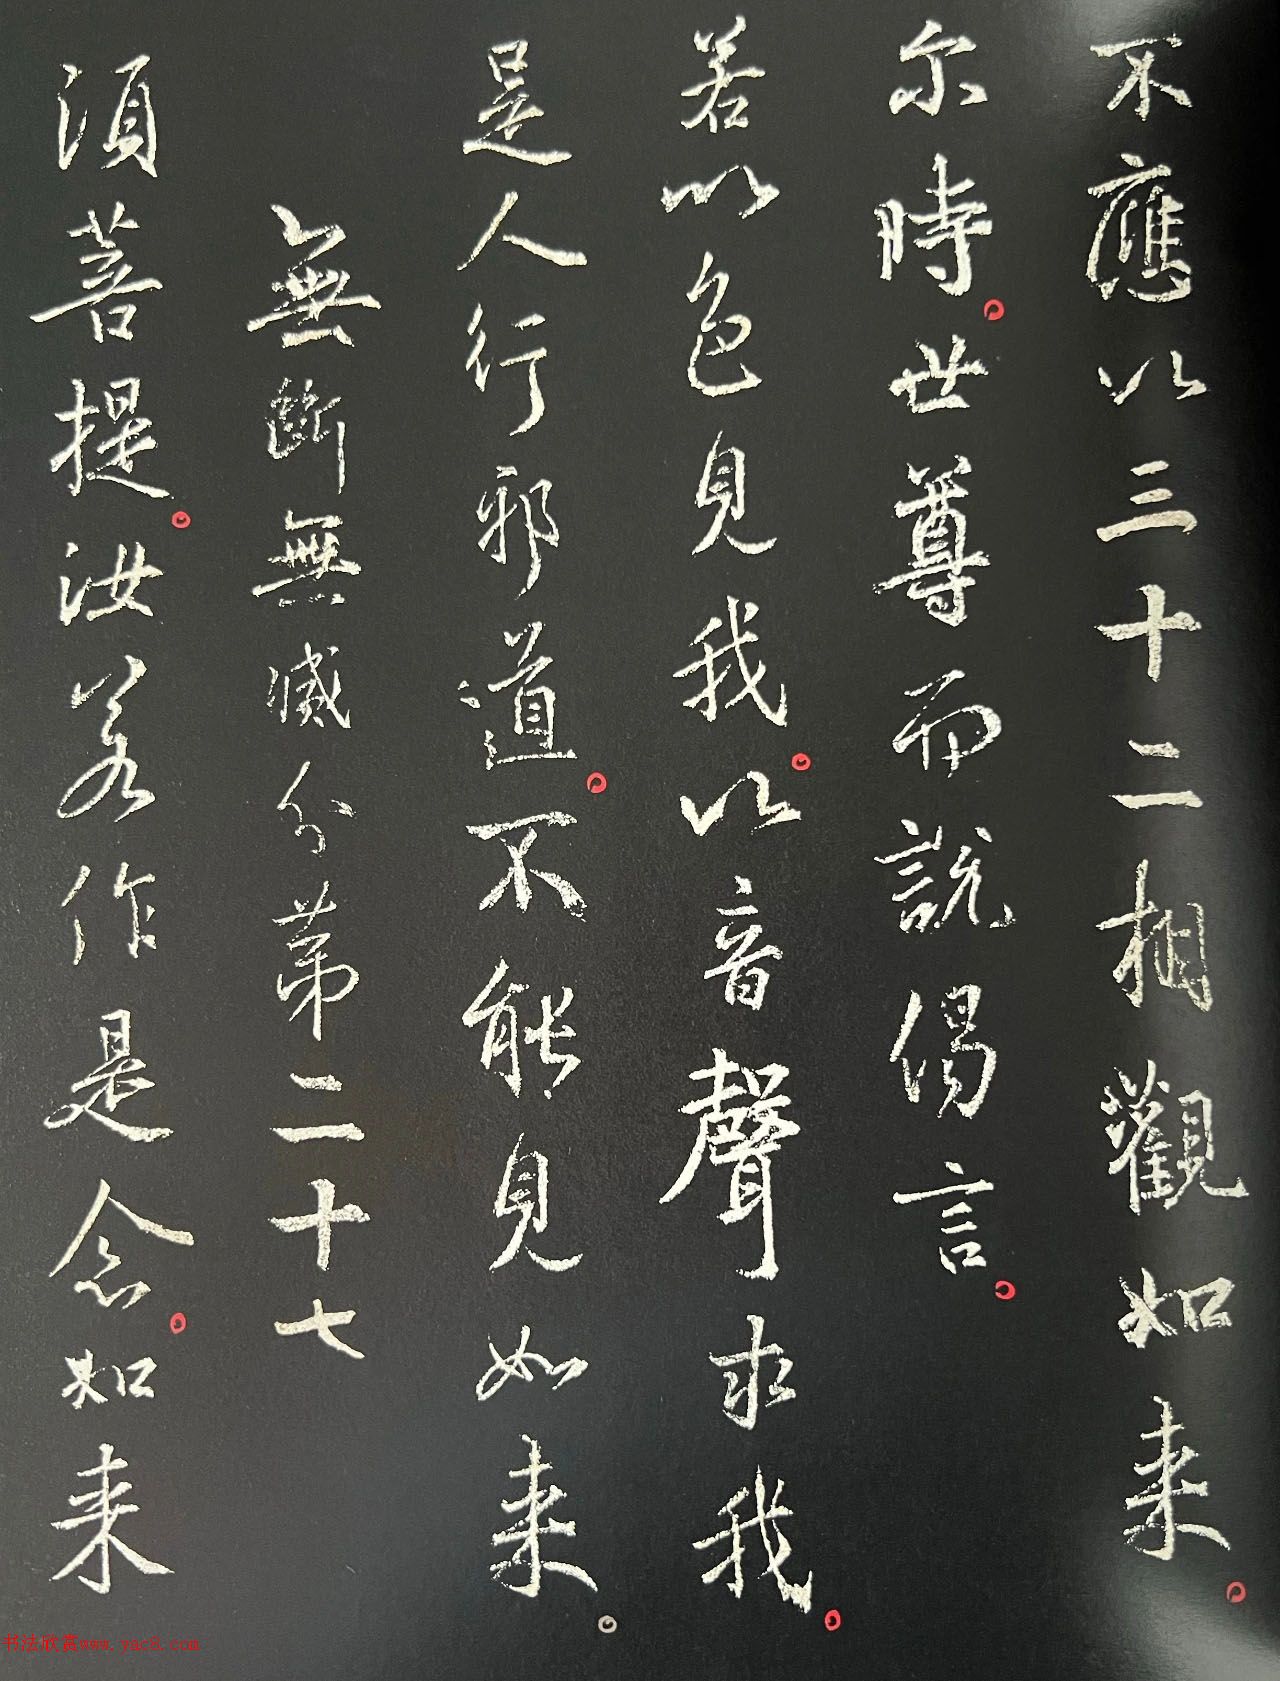 不應以三十二相觀如来。
尔時。世尊而説偈言。
若以色見我。以音聲求我。
是人行邪道。不能見如来。
無斷無滅分第二十七
須菩提。汝若作是念。如来
书法欣赏www.yac8.com